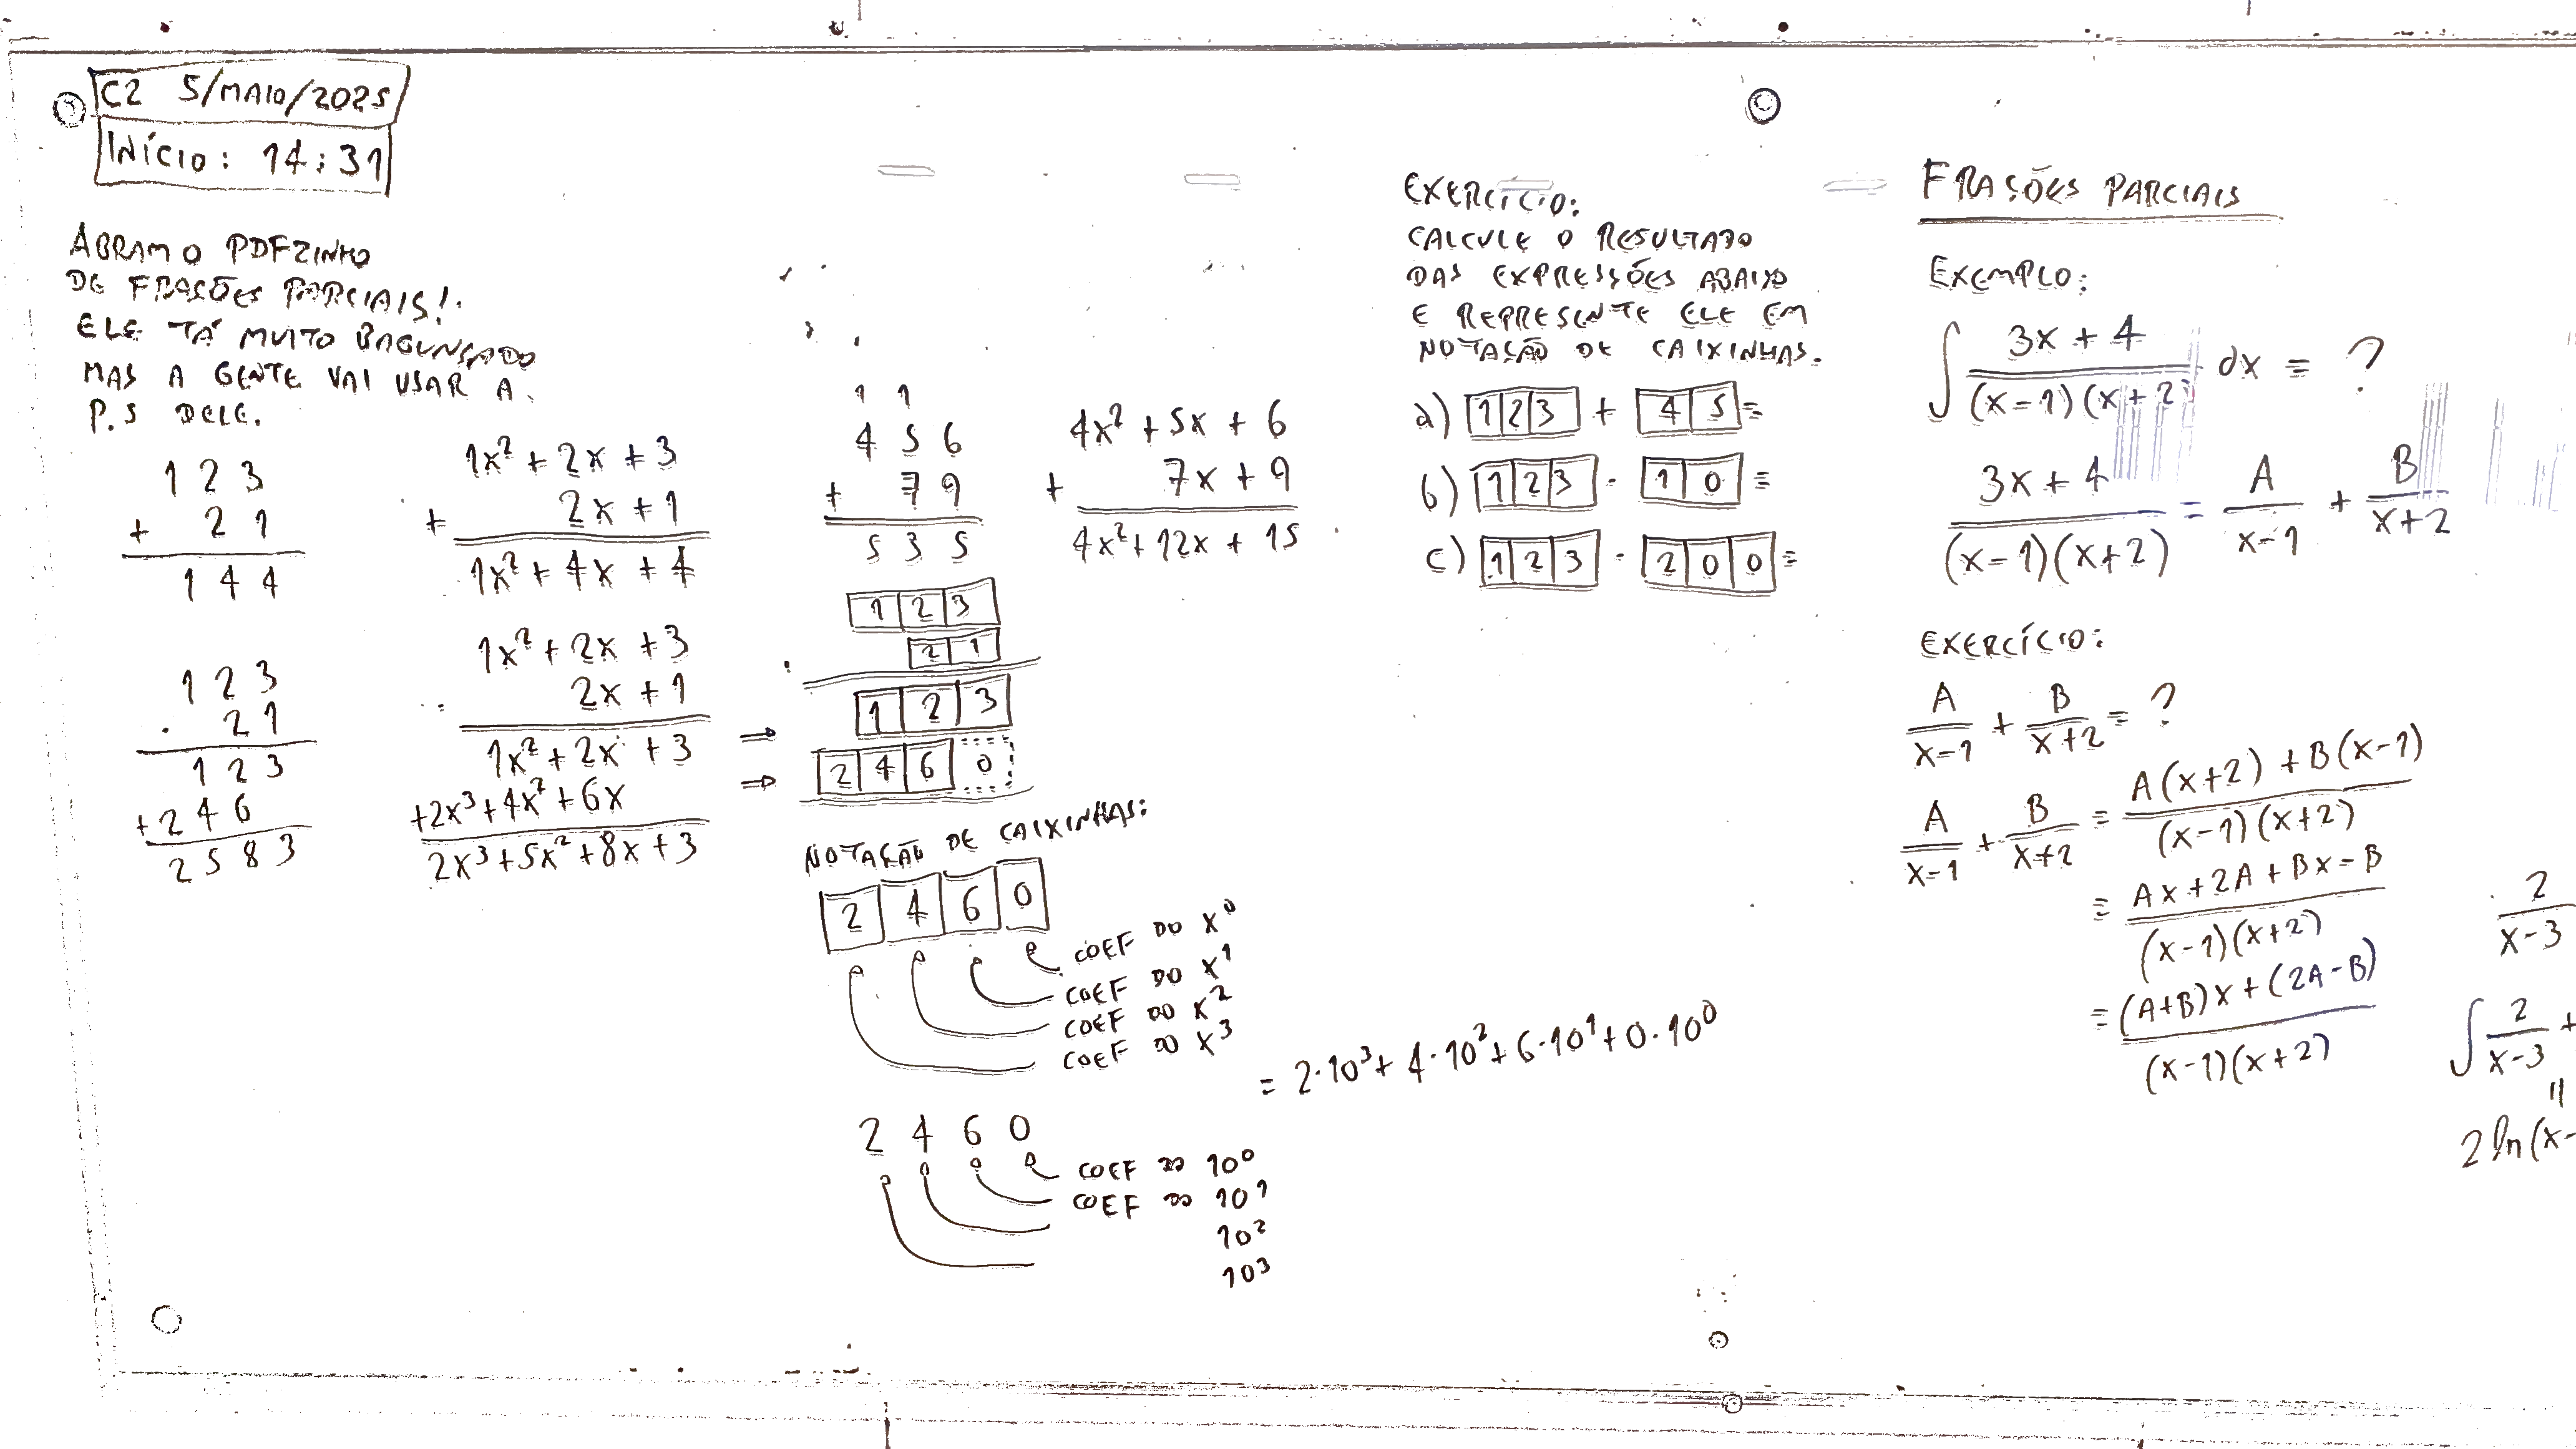 C2 5/MAIO/2025
INÍCIO: 14:31
ABRAM O PDFZINHO
DE FRAÇÕES PARCIAIS!
ELE TÁ MUITO BAGUNÇADO
MAS A GENTE VAI USAR A
P.5 DELE.
1 2 3
+ 2 1
1 4 4
1x² + 2x + 3
+ 2x + 1
1x² + 4x + 4
1 2 3
· 2 1
1 2 3
+ 2 4 6
2 5 8 3
1x² + 2x + 3
· 2x + 1
1x² + 2x + 3
+2x³ + 4x² + 6x
2x³ + 5x² + 8x + 3
1 1
4 5 6
+ 7 9
5 3 5
4x² + 5x + 6
+ 7x + 9
4x² + 12x + 15
1 2 3
· 2 1
⇒ 1 2 3
⇒ 2 4 6 0
NOTAÇÃO DE CAIXINHAS:
2 4 6 0
COEF DO x⁰
COEF DO x¹
COEF DO x²
COEF DO x³
2 4 6 0 = 2·10³ + 4·10² + 6·10¹ + 0·10⁰
COEF DO 10⁰
COEF DO 10¹
10²
10³
EXERCÍCIO:
CALCULE O RESULTADO
DAS EXPRESSÕES ABAIXO
E REPRESENTE ELE EM
NOTAÇÃO DE CAIXINHAS.
a) 1 2 3 + 4 5 =
b) 1 2 3 · 1 0 =
c) 1 2 3 · 2 0 0 =
FRAÇÕES PARCIAIS
EXEMPLO:
∫ (3x + 4)/((x-1)(x+2)) dx = ?
(3x + 4)/((x-1)(x+2)) = A/(x-1) + B/(x+2)
EXERCÍCIO:
A/(x-1) + B/(x+2) = ?
A/(x-1) + B/(x+2) = (A(x+2) + B(x-1))/((x-1)(x+2))
= (Ax + 2A + Bx - B)/((x-1)(x+2))
= ((A+B)x + (2A-B))/((x-1)(x+2))
2/(x-3)
∫ 2/(x-3) +
||
2 ln(x-